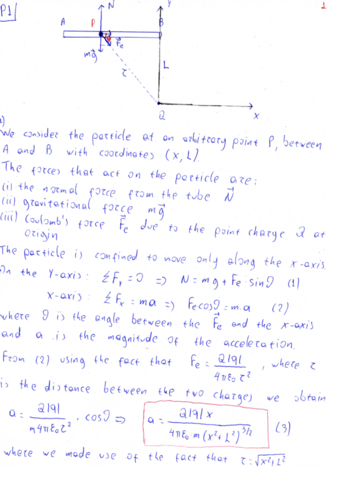 P1
1
N
Y
A
P
B
F_e
mg
r
L
Q
x
a)
We consider the particle at an arbitrary point P, between
A and B with coordinates (x, L)
The forces that act on the particle are:
(i) the normal force from the tube N⃗
(ii) gravitational force mg⃗
(iii) Coulomb's force F⃗e due to the point charge Q at
origin
The particle is confined to move only along the x-axis
On the Y-axis: ΣFy = 0 ⇒ N = mg + Fe sinϑ (1)
x-axis: ΣFx = ma ⇒ Fe cosϑ = m.a (2)
where ϑ is the angle between the F⃗e and the x-axis
and a is the magnitude of the acceleration.
From (2) using the fact that Fe = Q|q| / 4πε₀r², where r
is the distance between the two charges we obtain
a = Q|q| / m4πε₀r² · cosϑ ⇒ a = Q|q|x / 4πε₀ m(x²+L²)^3/2 (3)
where we made use of the fact that r = √x²+L²